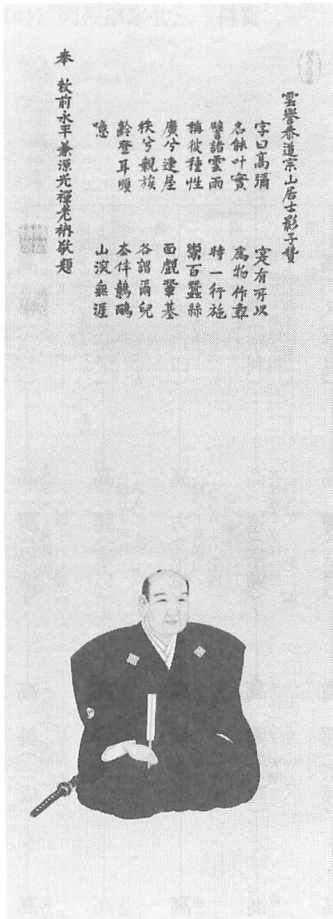 雲譽泰道宗山居士影子贊
字曰高彌 寔有可以
名 叶實 爲物作
譬諸雲雨 時一行施
稱彼種性 百蠶絲
廣兮連屋 面觀鞏基
秩兮親族 各謂爾兒
齡登耳順 伴鶴
噫 山溟無涯
奉 敕前永平兼源光禪老衲敬題